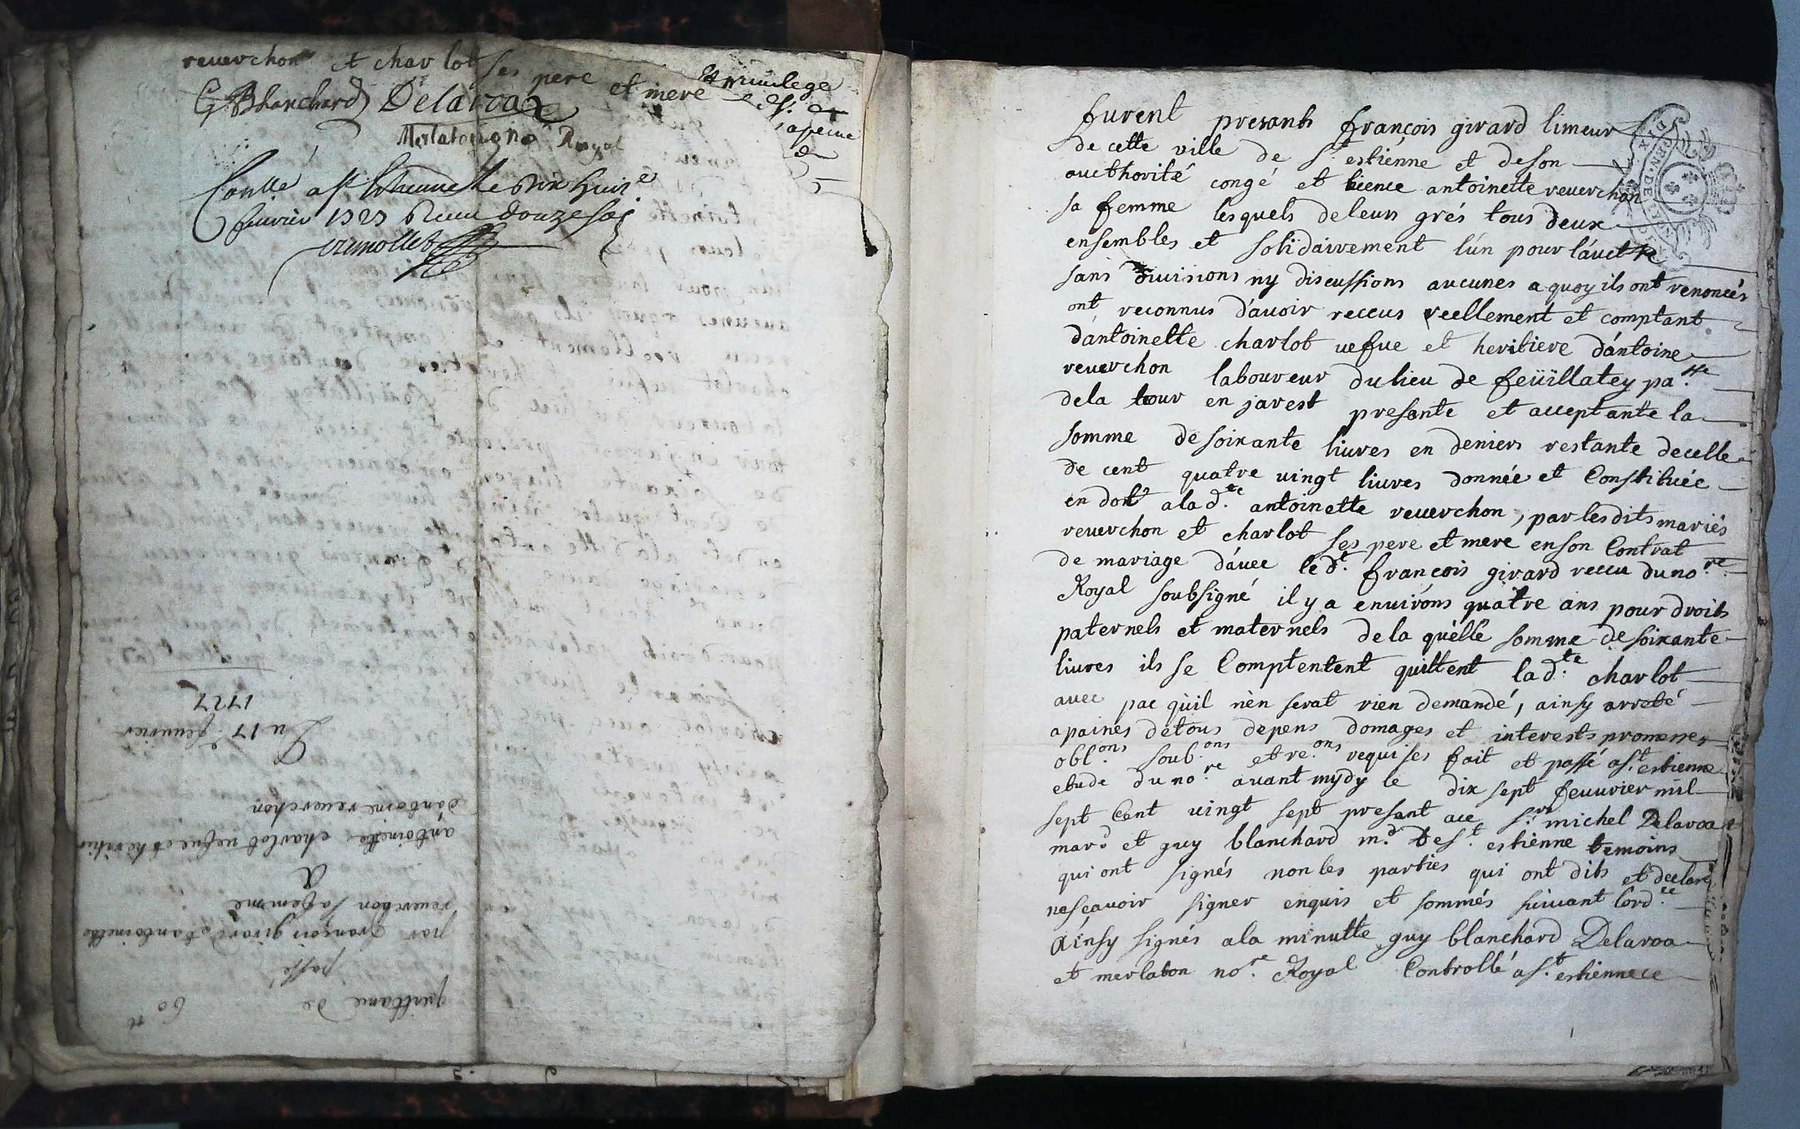 reuerchon et charlot ses pere et mere
et priuilege
G Blanchard Delaroa
Merlaton no.re Royal
fevrier 1727 Receu douze sols
Du 17 feuurier
1727
quittance de 60 ll
passé
par françois girard et antoinette
reuerchon sa femme
A
antoinette charlot uefue et heritiere
dantoine reuerchon
furent presants françois girard limeur
de cette ville de st estiénne et de son
authorité congé et licence antoinette reuerchon
sa femme lesquels de leurs grés tous deux
ensembles et solidairrement l'ún pour láutre
sans diuisions ny discussions aucunes a quoy ils ont renoncés
ont reconnus dáuoir receus reellement et comptant
dantoinette charlot uefue et heritiere dántoine
reuerchon laboureur du lieu de feüillatey pa.sse
de la tour en jarest presante et acceptante la
somme de soixante liures en deniers restante de celle
de cent quatre uingt liures donnée et Constituée
en dot a la d.te antoinette reuerchon, par les dits mariés
reuerchon et charlot ses pere et mere en son Contrat
de mariage dáuec le d.t françois girard receu du no.re
Royal soubsigné il y a enuirons quatre ans pour droits
paternels et maternels de la quélle somme de soixante
liures ils se Comptentent quittent la d.te charlot
avec pac qúil nén serat rien demandé, ainsy arreté
a paines de tous depens domages et interests promesses
obl.ons soub.ons et re.ons requises fait et passé a s.t estienne
etude du no.re auant mydy le dix sept feuurier mil
sept Cent uingt sept presant a ce s.r michel Delaroa
mar.d et guy blanchard m.d de s.t estienne temoins
qui ont signés non les parties qui ont dits et declaré
ne sçauoir signer enquis et sommés suiuant lord.ce
Aínsy signés a la minutte guy blanchard Delaroa
et merlaton no.re Royal Controllé a s.t estienne ce